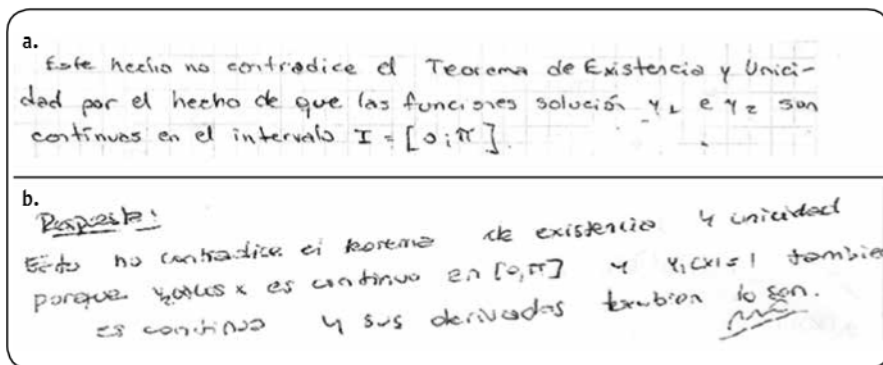 a.
Este hecho no contradice el Teorema de Existencia y Unici-
dad por el hecho de que las funciones solución y₁ e y₂ son
continuas en el intervalo I = [0;π].
b.
Respuesta:
Esto no contradice el teorema de existencia y unicidad
porque x es continua en [0,π] y y₁(x)=1 tambie
es continua y sus derivadas tambien lo son.